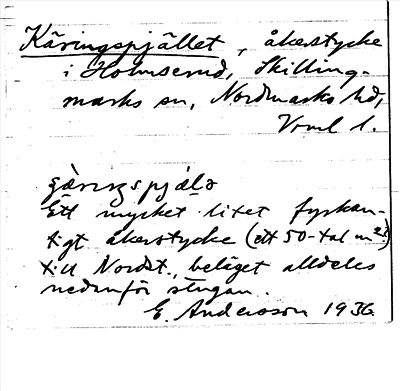 Käringspjället, åkerstycke
i Holmserud, Skilling-
marks sn, Nordmarks hd,
Vrml l.
Ett mycket litet fyrkan-
tigt åkerstycke (ett 50-tal m²)
till Nordst., beläget alldeles
nedanför stugan.
E. Andersson 1936.